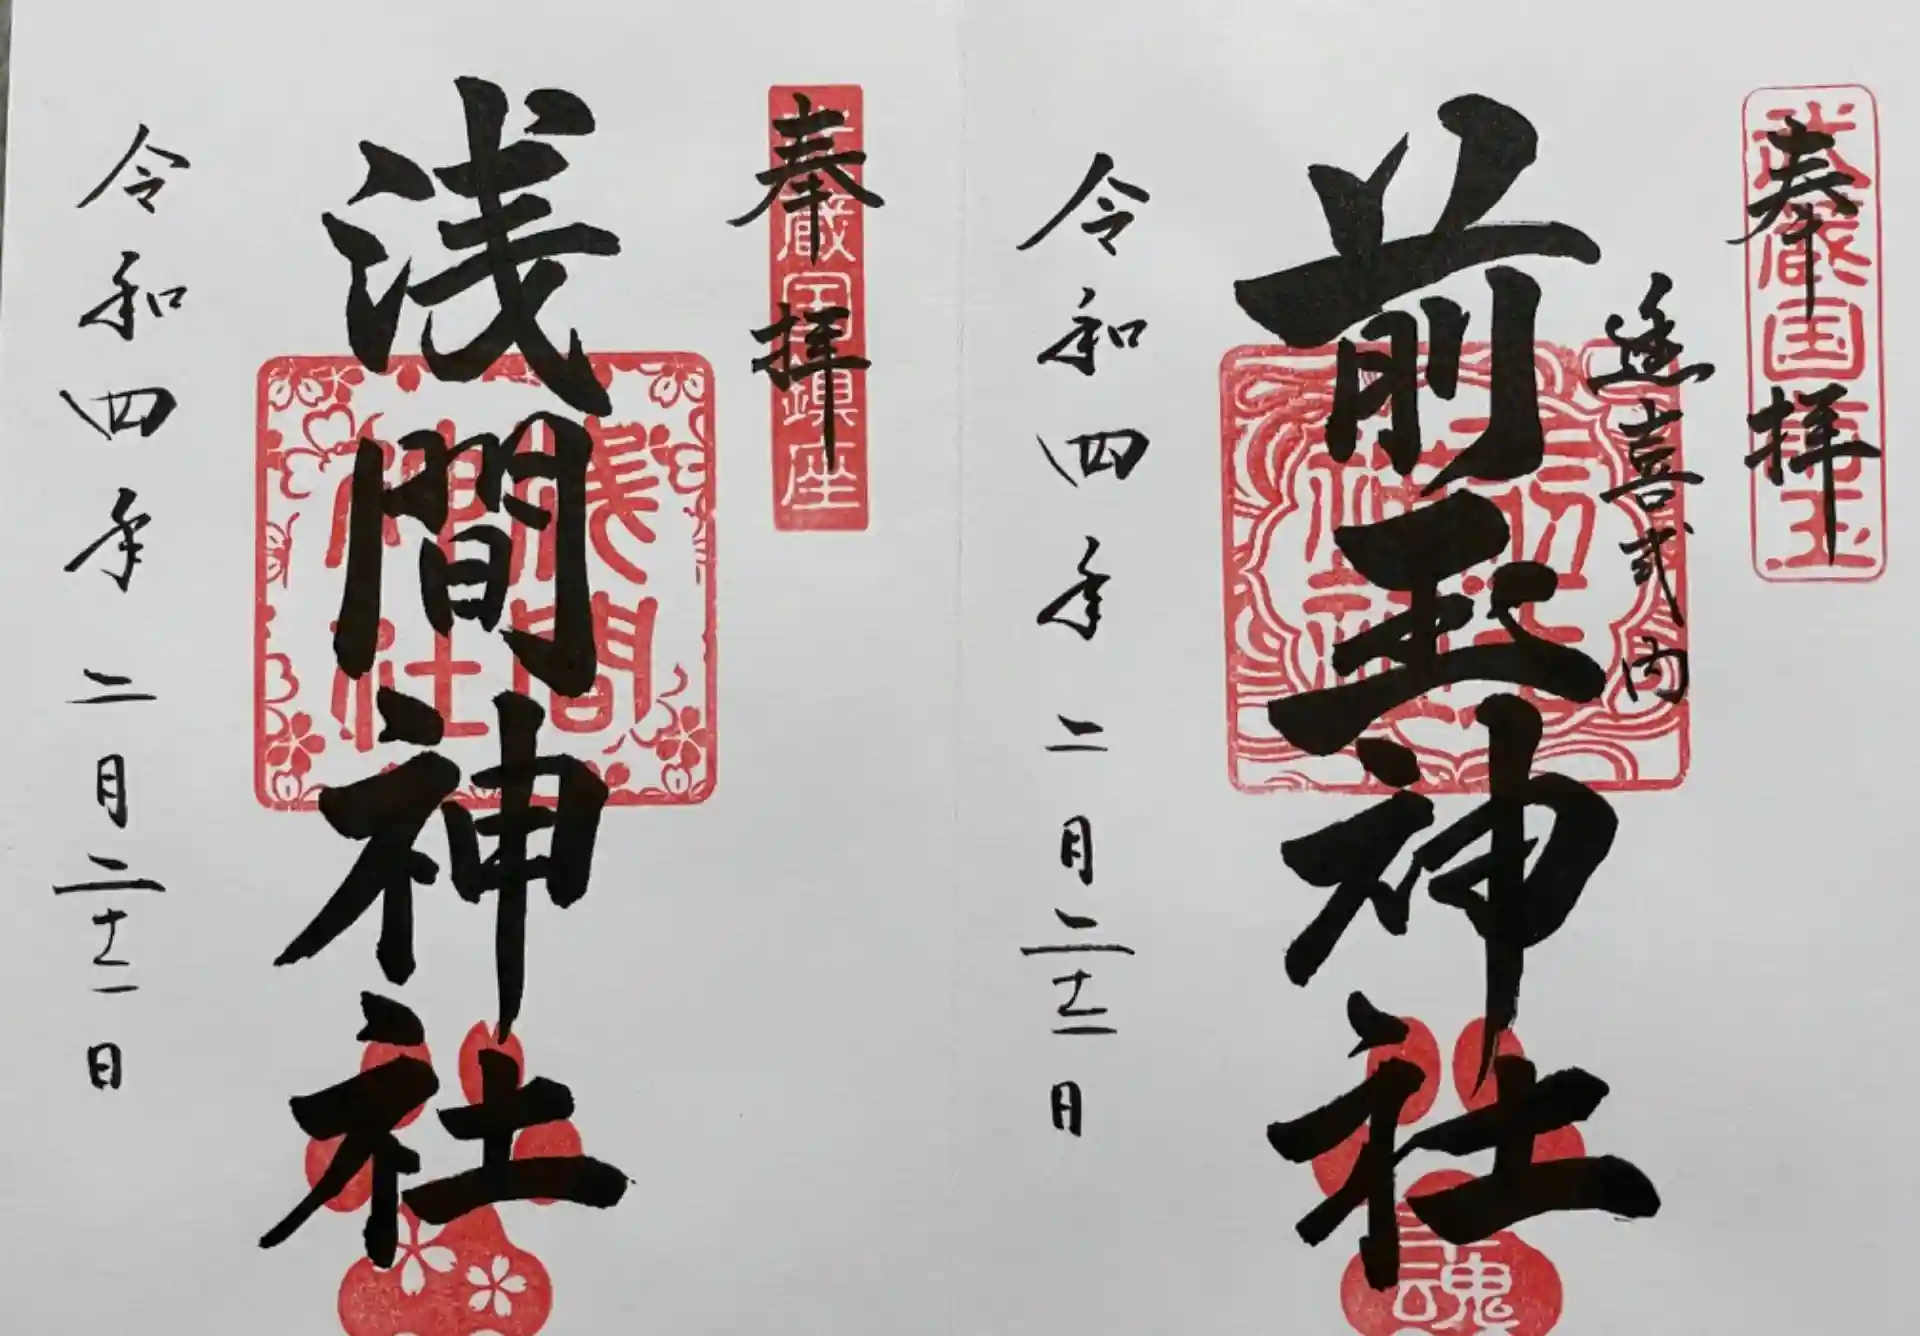 奉拝
武蔵国埼玉
延喜式内
前玉神社
前玉神社
幸魂
令和四年二月二十二日
奉拝
武蔵国鎮座
浅間神社
浅間神社
令和四年二月二十二日